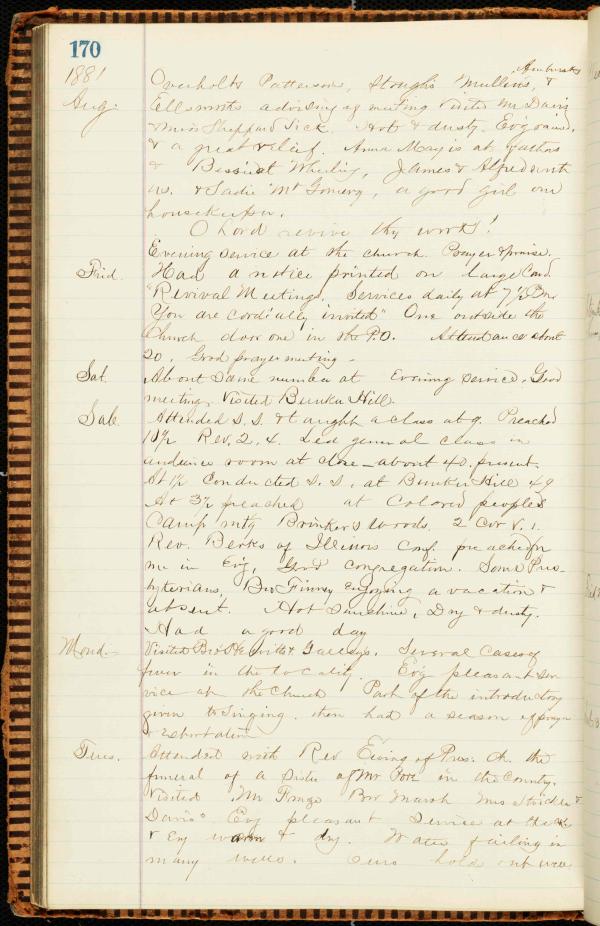 170
1881
Aug.
Overholts Pattersons, Stoughs Mullins, &
Ellsworths advising of meeting Visited Mr Davis
& Miss Sheppard Sick. Hot & dusty. Ev'g rained,
& a great relief. Anna May is at fathers
& Bessie at Wheeling, James & Alfred with
us. & Sadie Mt Gomery, a good girl our
housekeeper.
O Lord revive thy work!
Evening service at the church. Prayer & praise.
Frid. Had a notice printed on large Card
"Revival Meetings. Services daily at 7½ P.M.
You are cordially invited" One outside the
Church door one in the P.O. Attendance about
20. Good prayer meeting -
Sat. About Same number at Evening service. Good
meeting. Visited Bunker Hill.
Sab. Attended S.S. & taught a class at 9. Preached
10½ Rev. 2, 4. Led general class in
audience room at close - about 40. present.
At 1½ Conducted S.S. at Bunker Hill 49
At 3½ preached at Colored people's
Camp mtg Brinkers Woods. 2 Cor V. 1.
Rev. Berks of Illinois Conf. preached for
me in Ev'g, Good congregation. Some Pres-
byterians, Bro Finney enjoying a vacation &
absent. Hot Sunshine, Dry & dusty.
Had a good day
Mond. - Visited Bro Hewitts & Several Cases of
fever in the locality. Ev'g pleasant ser
vice at the Church Part of the introductory
given to Singing. then had a season of prayer
& exhortation
Tues. Attended with Rev Ewing of Pres. Ch. the
funeral of a Sister of Mr in the County.
Visited Mr Bro Marsh Mrs &
Davis" Ev'g pleasant Service at the Ch
& Ev'g warm & dry. Water failing in
many wells. Ours hold out well